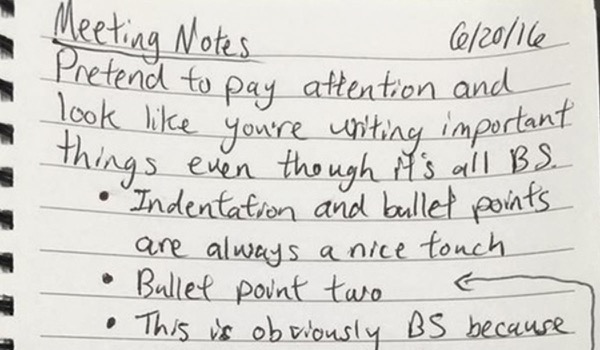 Meeting Notes 6/20/16
Pretend to pay attention and
look like you're writing important
things even though it's all BS.
• Indentation and bullet points
are always a nice touch
• Bullet point two
• This is obviously BS because